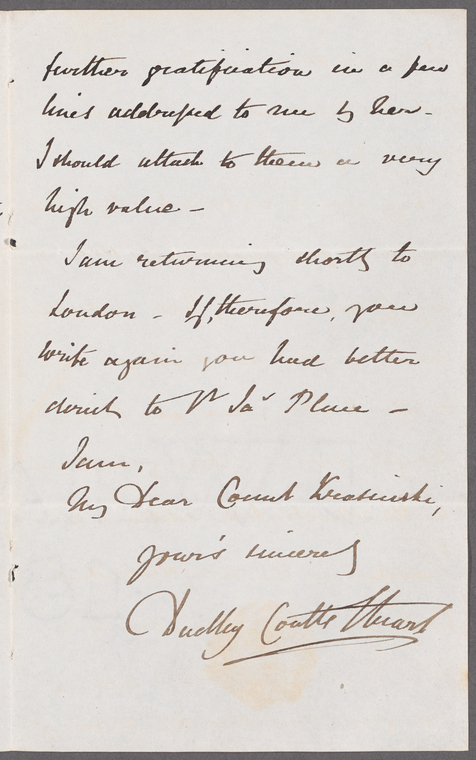 further gratification in a few
lines addressed to me by her -
I should attach to them a very
high value -
I am returning shortly to
London - If, therefore, you
write again you had better
direct to St Jas Place -
I am,
My Dear Count Krasinski,
your's sincerely
Dudley Coutts Stuart